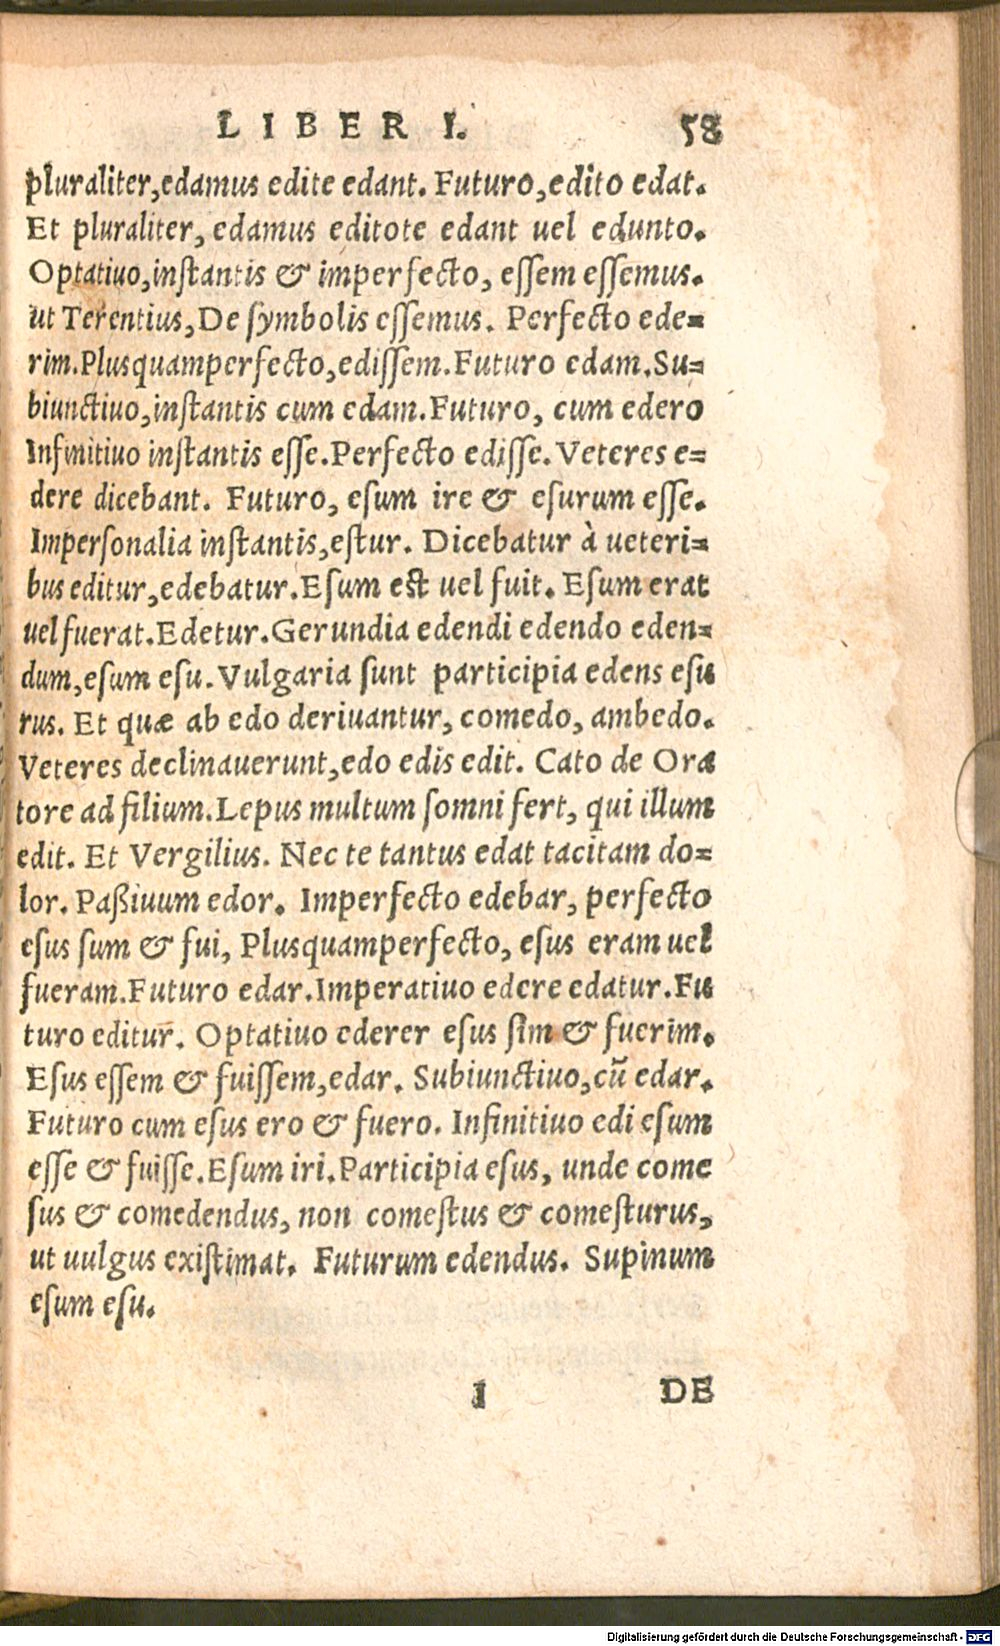 LIBER I. 58
pluraliter,edamus edite edant. Futuro,edito edat.
Et pluraliter, edamus editote edant uel edunto.
Optatiuo,inſtantis & imperfecto, eſſem eſſemus.
ut Terentius,De ſymbolis eſſemus. Perfecto ede=
rim.Plusquamperfecto,ediſſem.Futuro edam.Su=
biunctiuo,inſtantis cum edam.Futuro, cum edero
Infinitiuo inſtantis eſſe.Perfecto ediſſe.Veteres e=
dere dicebant. Futuro, eſum ire & eſurum eſſe.
Imperſonalia inſtantis,eſtur. Dicebatur à ueteri=
bus editur,edebatur.Eſum eſt uel fuit. Eſum erat
uel fuerat.Edetur.Gerundia edendi edendo eden=
dum,eſum eſu.Vulgaria ſunt participia edens eſu
rus. Et quæ ab edo deriuantur, comedo, ambedo.
Veteres declinauerunt,edo edis edit. Cato de Ora
tore ad filium.Lepus multum ſomni fert, qui illum
edit. Et Vergilius. Nec te tantus edat tacitam do=
lor. Paßiuum edor. Imperfecto edebar, perfecto
eſus ſum & fui, Plusquamperfecto, eſus eram uel
fueram.Futuro edar.Imperatiuo edere edatur.Fu
turo editur. Optatiuo ederer eſus ſim & fuerim.
Eſus eſſem & fuiſſem,edar. Subiunctiuo,cũ edar.
Futuro cum eſus ero & fuero. Infinitiuo edi eſum
eſſe & fuiſſe.Eſum iri.Participia eſus, unde come
ſus & comedendus, non comeſtus & comeſturus,
ut uulgus exiſtimat. Futurum edendus. Supinum
eſum eſu.
I DE
Digitalisierung gefördert durch die Deutsche Forschungsgemeinschaft - DFG